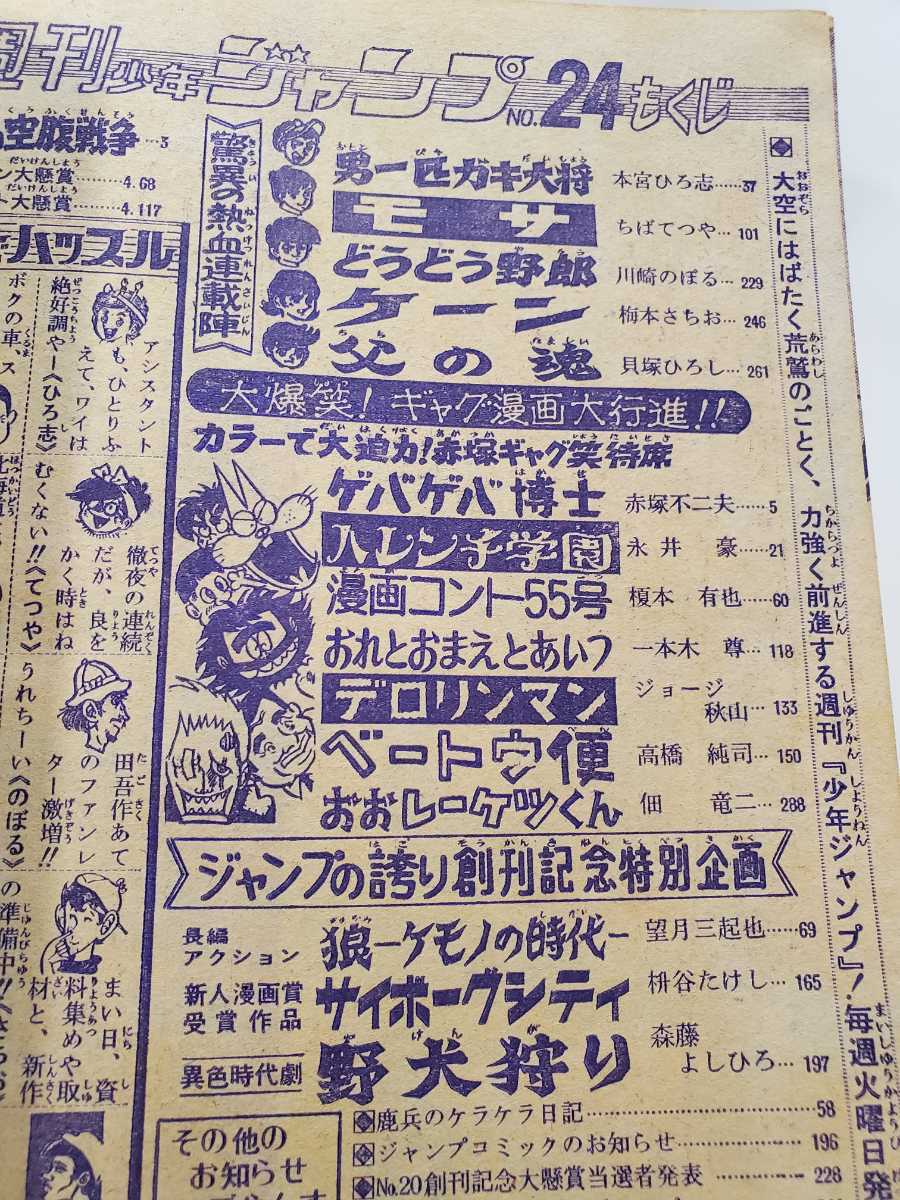 週刊少年ジャンプNO.24もくじ
◆大空にはばたく荒鷲のごとく、力強く前進する週刊『少年ジャンプ』!毎週火曜日発
驚異の熱血連載陣
男一匹ガキ大将 本宮ひろ志…37
モサ ちばてつや…101
どうどう野郎 川崎のぼる…229
ケーン 梅本さちお…246
父の魂 貝塚ひろし…261
大爆笑!ギャグ漫画大行進!!
カラーで大迫力!赤塚ギャグ笑待席
ゲバゲバ博士 赤塚不二夫…5
ハレンチ学園 永井 豪…21
漫画コント55号 榎本 有也…60
おれとおまえとあいつ 一本木 尊…118
デロリンマン ジョージ秋山…133
ベートウ便 高橋 純司…150
おおレーゲツくん 佃 竜二…288
ジャンプの誇り創刊記念特別企画
長編アクション 狼-ケモノの時代- 望月三起也…69
新人漫画賞受賞作品 サイボーグシティ 枡谷たけし…165
異色時代劇 野犬狩り 森藤よしひろ…197
◆鹿兵のケラケラ日記…58
◆ジャンプコミックのお知らせ…196
◆No.20創刊記念大懸賞当選者発表…228
その他の
お知らせ
空腹戦争…3
ン大懸賞…4.68
ト大懸賞…4.117
ハッスル
アシスタント
も、ひとりふ
えて、ワイは
絶好調や―《ひろ志》
ボクの車、ス
徹夜の連続
だが、良を
かく時はね
むくない!!《てつや》
田吾作あて
のファンレ
ター激増!!
うれちーい《のぼる》
まい日、資
料集めや取
材と、新作
の準備中!!